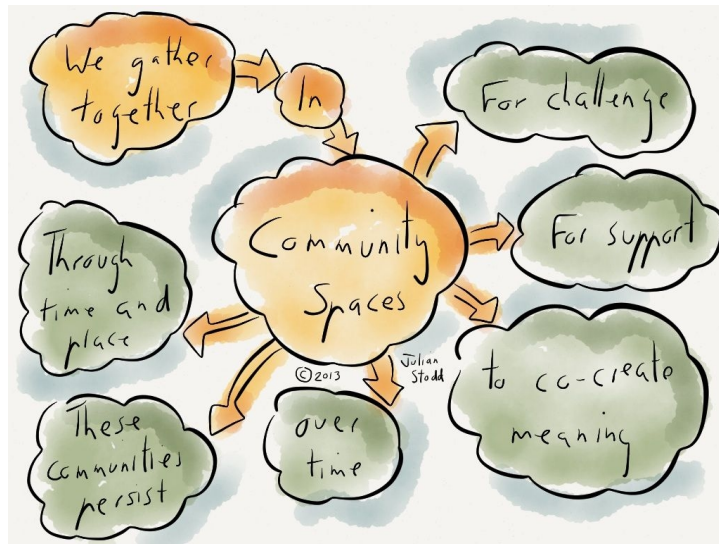 We gather
together
In
Community
Spaces
For challenge
For support
to co-create
meaning
over
time
These
communities
persist
Through
time and
place
© 2013
Julian
Stodd